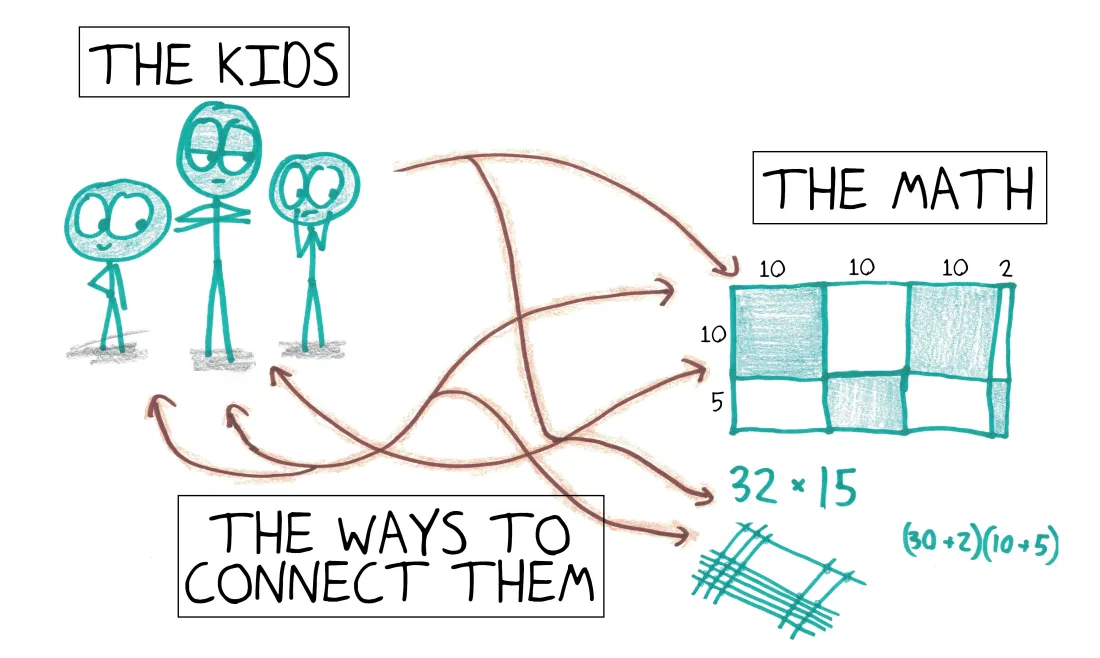 THE KIDS
THE MATH
10 10 10 2
10
5
32 × 15
(30+2)(10+5)
THE WAYS TO
CONNECT THEM